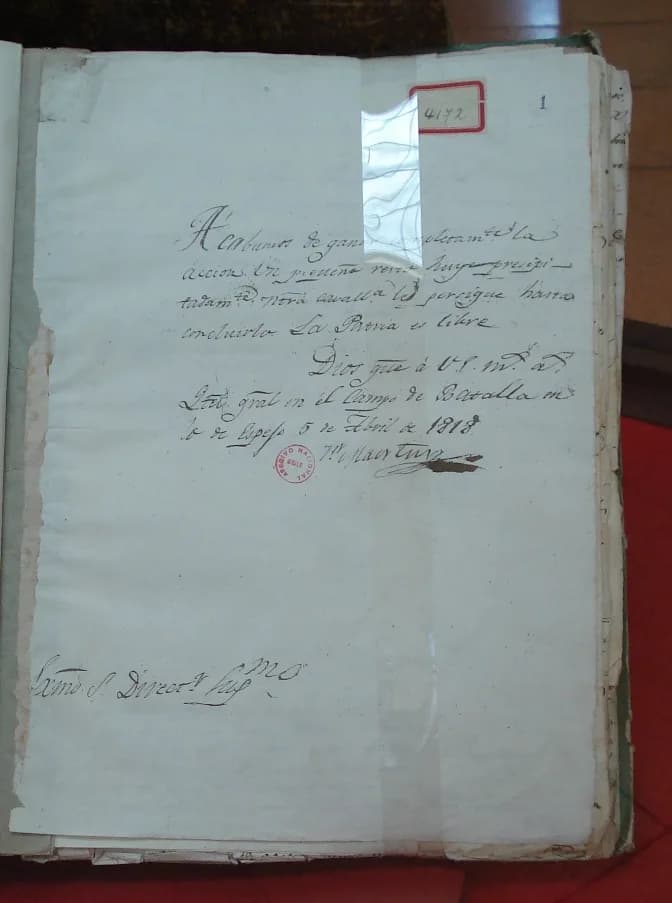 4172
1
Acabamos de ganar completam.te la
accion. Un pequeño resto huye precipi-
tadam.te ntrã cavall.a lo persigue hasta
concluirlo. La Patria es libre
Dios gue à V.E. m.s a.s
Qtel gral en el Campo de Batalla en
lo de Espejo 5 de Abril de 1818
ARCHIVO NACIONAL
CHILE
Exmõ. S. Direct.r Sup.mo